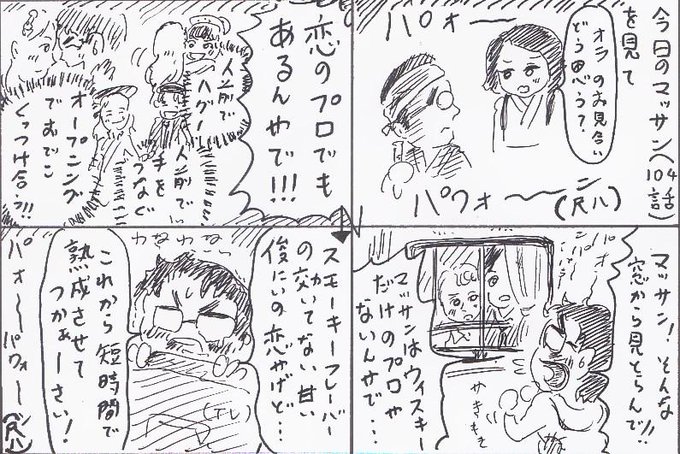 今日のマッサン(104話)
を見て
オラのお見合い
どう思う?
パォ〜
パウォ〜ン
(尺八)
マッサン!そんな
窓から見とらんで!!
マッサンはウィスキー
だけのプロや
ないんやで…
恋のプロでも
あるんやで!!!
人前で
ハグ!
人前で
手を
つなぐ
オープニング
でおでこ
くっつけ合う!!
スモーキーフレーバー
の効いてない甘い
俊にいの恋やけど…
わなわな
これから短時間で
熟成させて
つかぁーさい!
パォ〜パウォ〜(尺八)